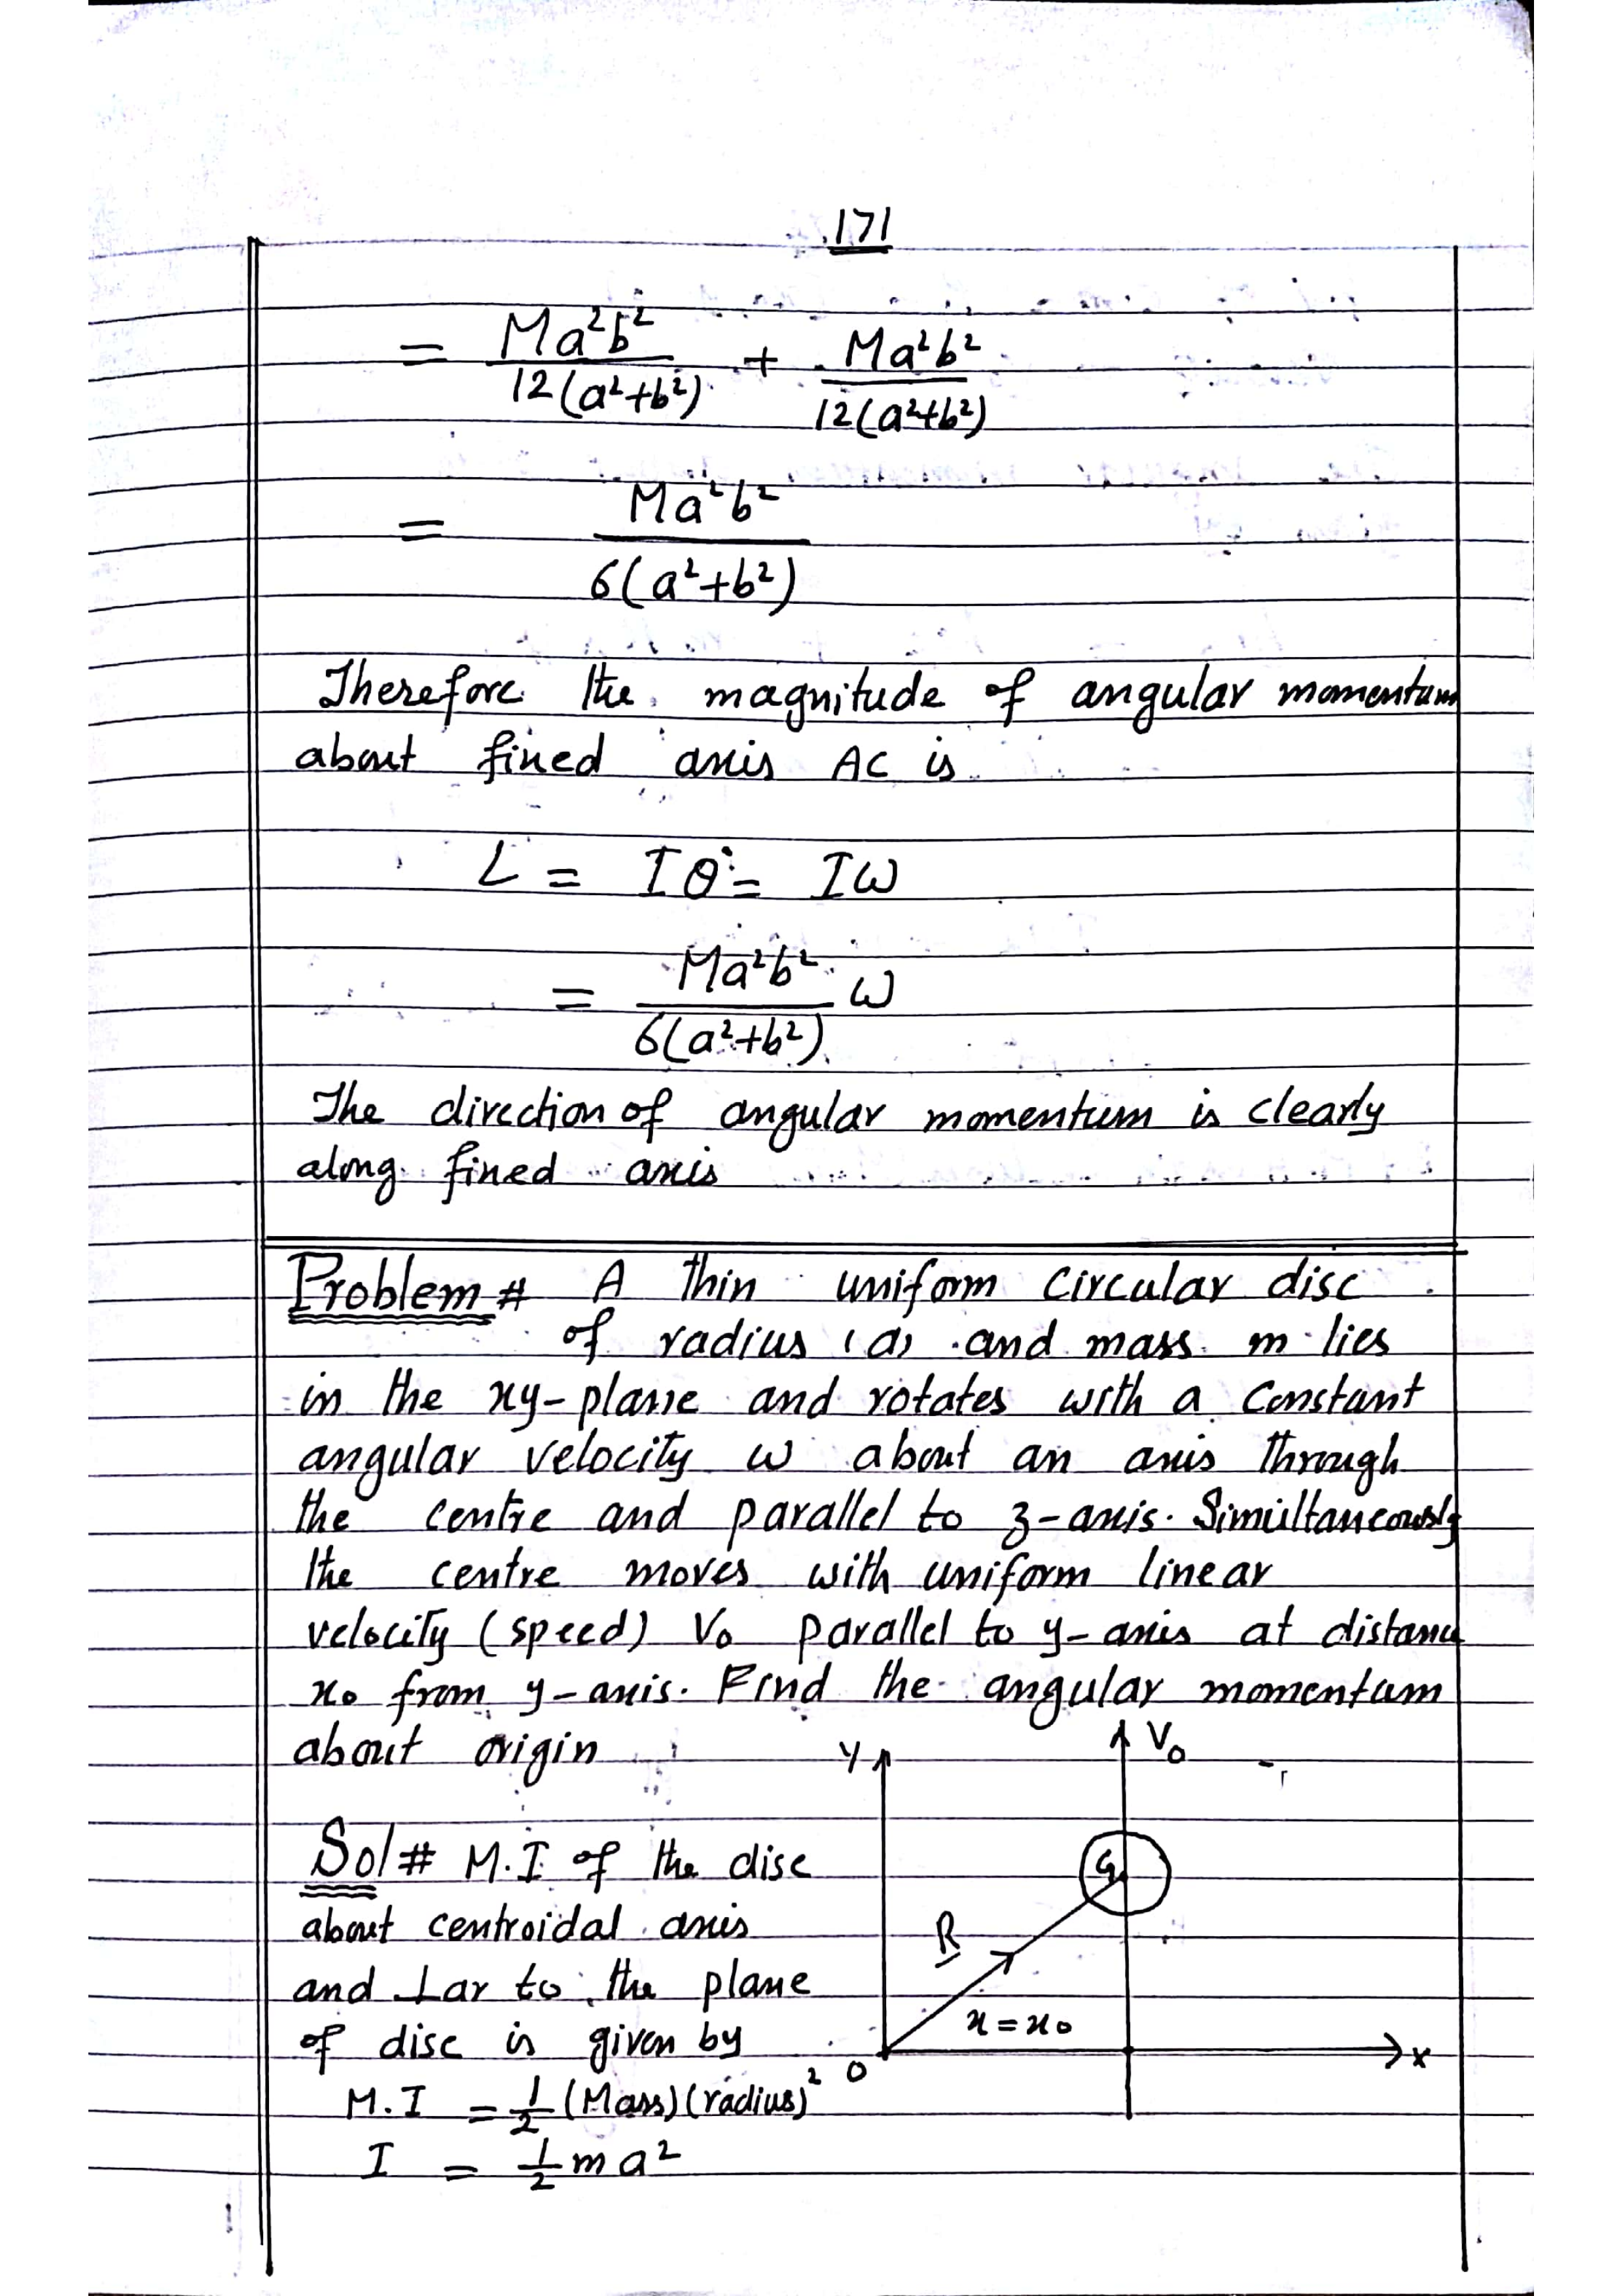 171
= Ma²b² / 12(a²+b²) + Ma²b² / 12(a²+b²)
= Ma²b² / 6(a²+b²)
Therefore the magnitude of angular momentum
about fixed axis AC is
L = Iθ̇ = Iω
= Ma²b² / 6(a²+b²) ω
The direction of angular momentum is clearly
along fixed axis
Problem # A thin uniform circular disc
of radius (a) and mass m lies
in the xy-plane and rotates with a constant
angular velocity ω about an axis through
the centre and parallel to z-axis. Simultaneously
the centre moves with uniform linear
velocity (speed) V₀ parallel to y-axis at distance
x₀ from y-axis. Find the angular momentum
about origin
Y
V₀
Sol # M.I of the disc
G
about centroidal axis
R
and ⊥ar to the plane
of disc is given by
x = x₀
O
X
M.I = ½ (Mass) (radius)²
I = ½ m a²